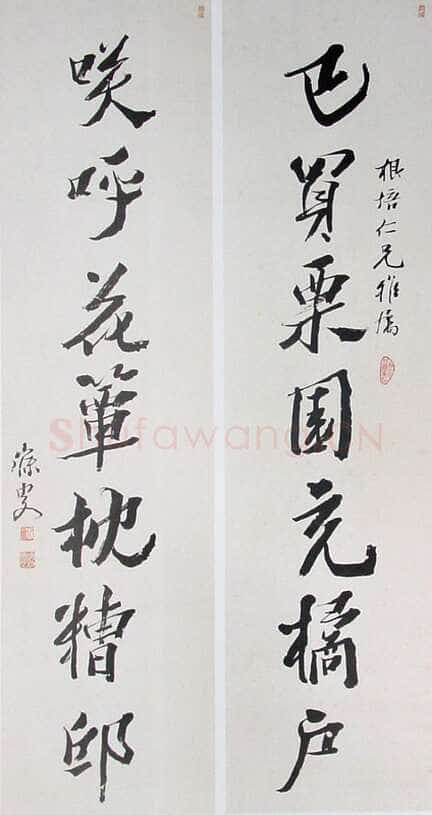 已買栗園充橘戶
根培仁兄雅屬
咲呼花簟枕糟邱
滌叟
Shufawang.CN